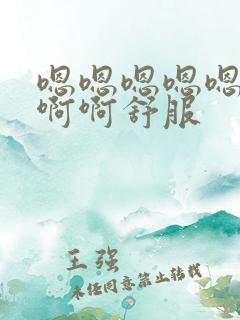 嗯嗯嗯嗯嗯
啊啊舒服
王强
未经同意禁止转载